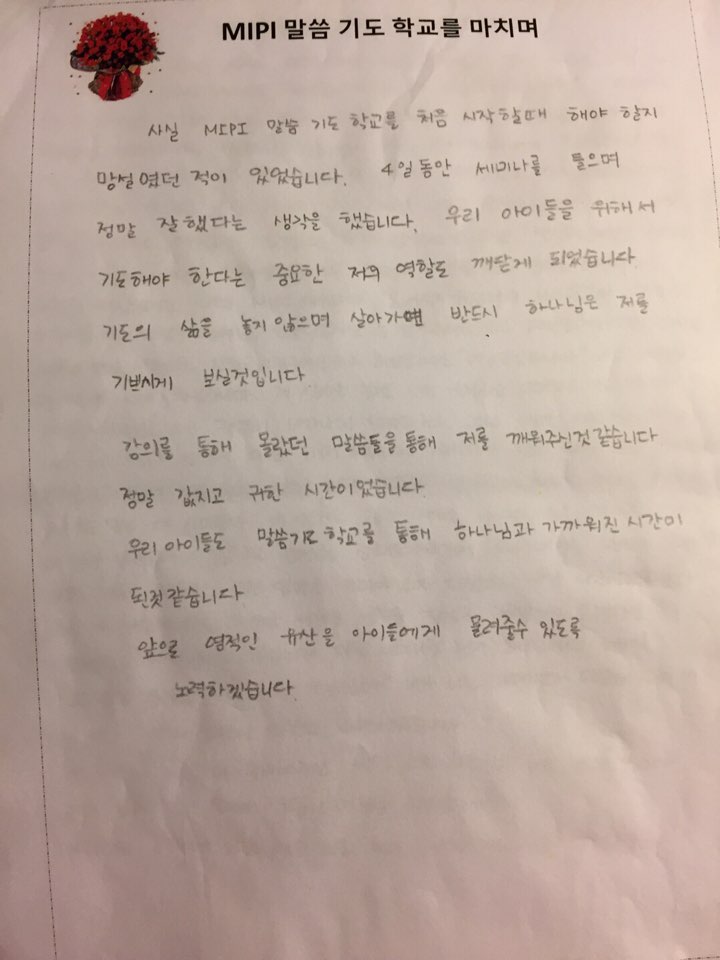 MIPI 말씀 기도 학교를 마치며
사실 MIPI 말씀 기도 학교를 처음 시작할때 해야 할지
망설였던 적이 있었습니다. 4일동안 세미나를 들으며
정말 잘했다는 생각을 했습니다. 우리 아이들을 위해서
기도해야 한다는 중요한 저의 역할도 깨닫게 되었습니다
기도의 삶을 놓지 않으며 살아가면 반드시 하나님은 저를
기쁘시게 보실것입니다
강의를 통해 몰랐던 말씀들을 통해 저를 깨워주신것 같습니다
정말 값지고 귀한 시간이었습니다
우리 아이들도 말씀기도 학교를 통해 하나님과 가까워진 시간이
된것 같습니다
앞으로 영적인 유산을 아이들에게 물려줄수 있도록
노력하겠습니다.